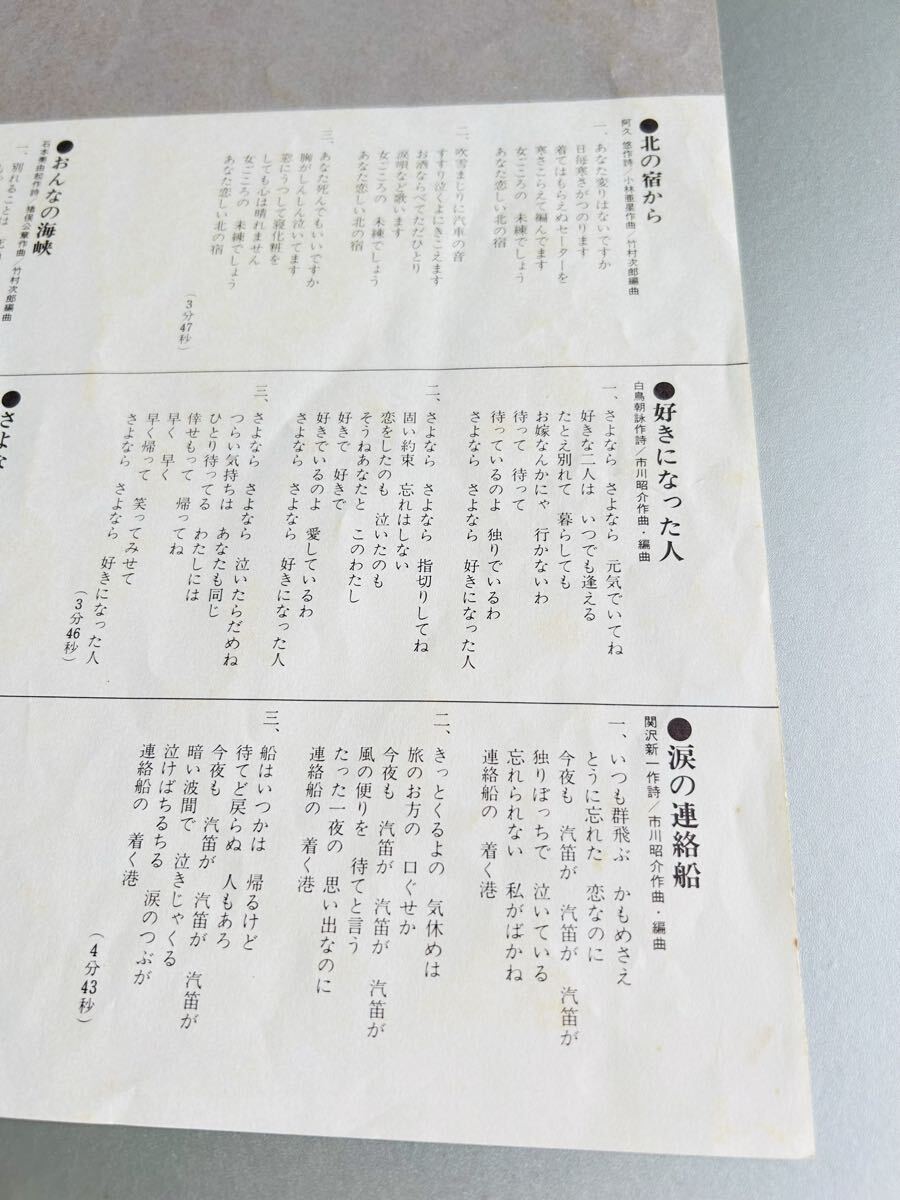 ●北の宿から
阿久 悠作詩/小林亜星作曲/竹村次郎編曲
一、あなた変りはないですか
日毎寒さがつのります
着てはもらえぬセーターを
寒さこらえて編んでます
女ごころの 未練でしょう
あなた恋しい北の宿
二、吹雪まじりに汽車の音
すすり泣くよにきこえます
お酒ならべてただひとり
涙唄など歌います
女ごころの 未練でしょう
あなた恋しい北の宿
三、あなた死んでもいいですか
胸がしんしん泣いてます
窓にうつして寝化粧を
しても心は晴れません
女ごころの 未練でしょう
あなた恋しい北の宿
(3分47秒)
●おんなの海峡
石本美由起作詩/猪俣公章作曲/竹村次郎編曲
一、別れることは
●好きになった人
白鳥朝詠作詩/市川昭介作曲・編曲
一、さよなら さよなら 元気でいてね
好きな二人は いつでも逢える
たとえ別れて 暮らしても
お嫁なんかにゃ 行かないわ
待って 待って
待っているのよ 独りでいるわ
さよなら さよなら 好きになった人
二、さよなら さよなら 指切りしてね
固い約束 忘れはしない
恋をしたのも 泣いたのも
そうねあなたと このわたし
好きで 好きで
好きでいるのよ 愛しているわ
さよなら さよなら 好きになった人
三、さよなら さよなら 泣いたらだめね
つらい気持ちは あなたも同じ
ひとり待ってる わたしには
倖せもって 帰ってね
早く 早く
早く帰って 笑ってみせて
さよなら さよなら 好きになった人
(3分46秒)
●さよな
●涙の連絡船
関沢新一作詩/市川昭介作曲・編曲
一、いつも群飛ぶ かもめさえ
とうに忘れた 恋なのに
今夜も 汽笛が 汽笛が 汽笛が
独りぼっちで 泣いている
忘れられない 私がばかね
連絡船の 着く港
二、きっとくるよの 気休めは
旅のお方の 口ぐせか
今夜も 汽笛が 汽笛が 汽笛が
風の便りを 待てと言う
たった一夜の 思い出なのに
連絡船の 着く港
三、船はいつかは 帰るけど
待てど戻らぬ 人もあろ
今夜も 汽笛が 汽笛が 汽笛が
暗い波間で 泣きじゃくる
泣けばちるちる 涙のつぶが
連絡船の 着く港
(4分43秒)